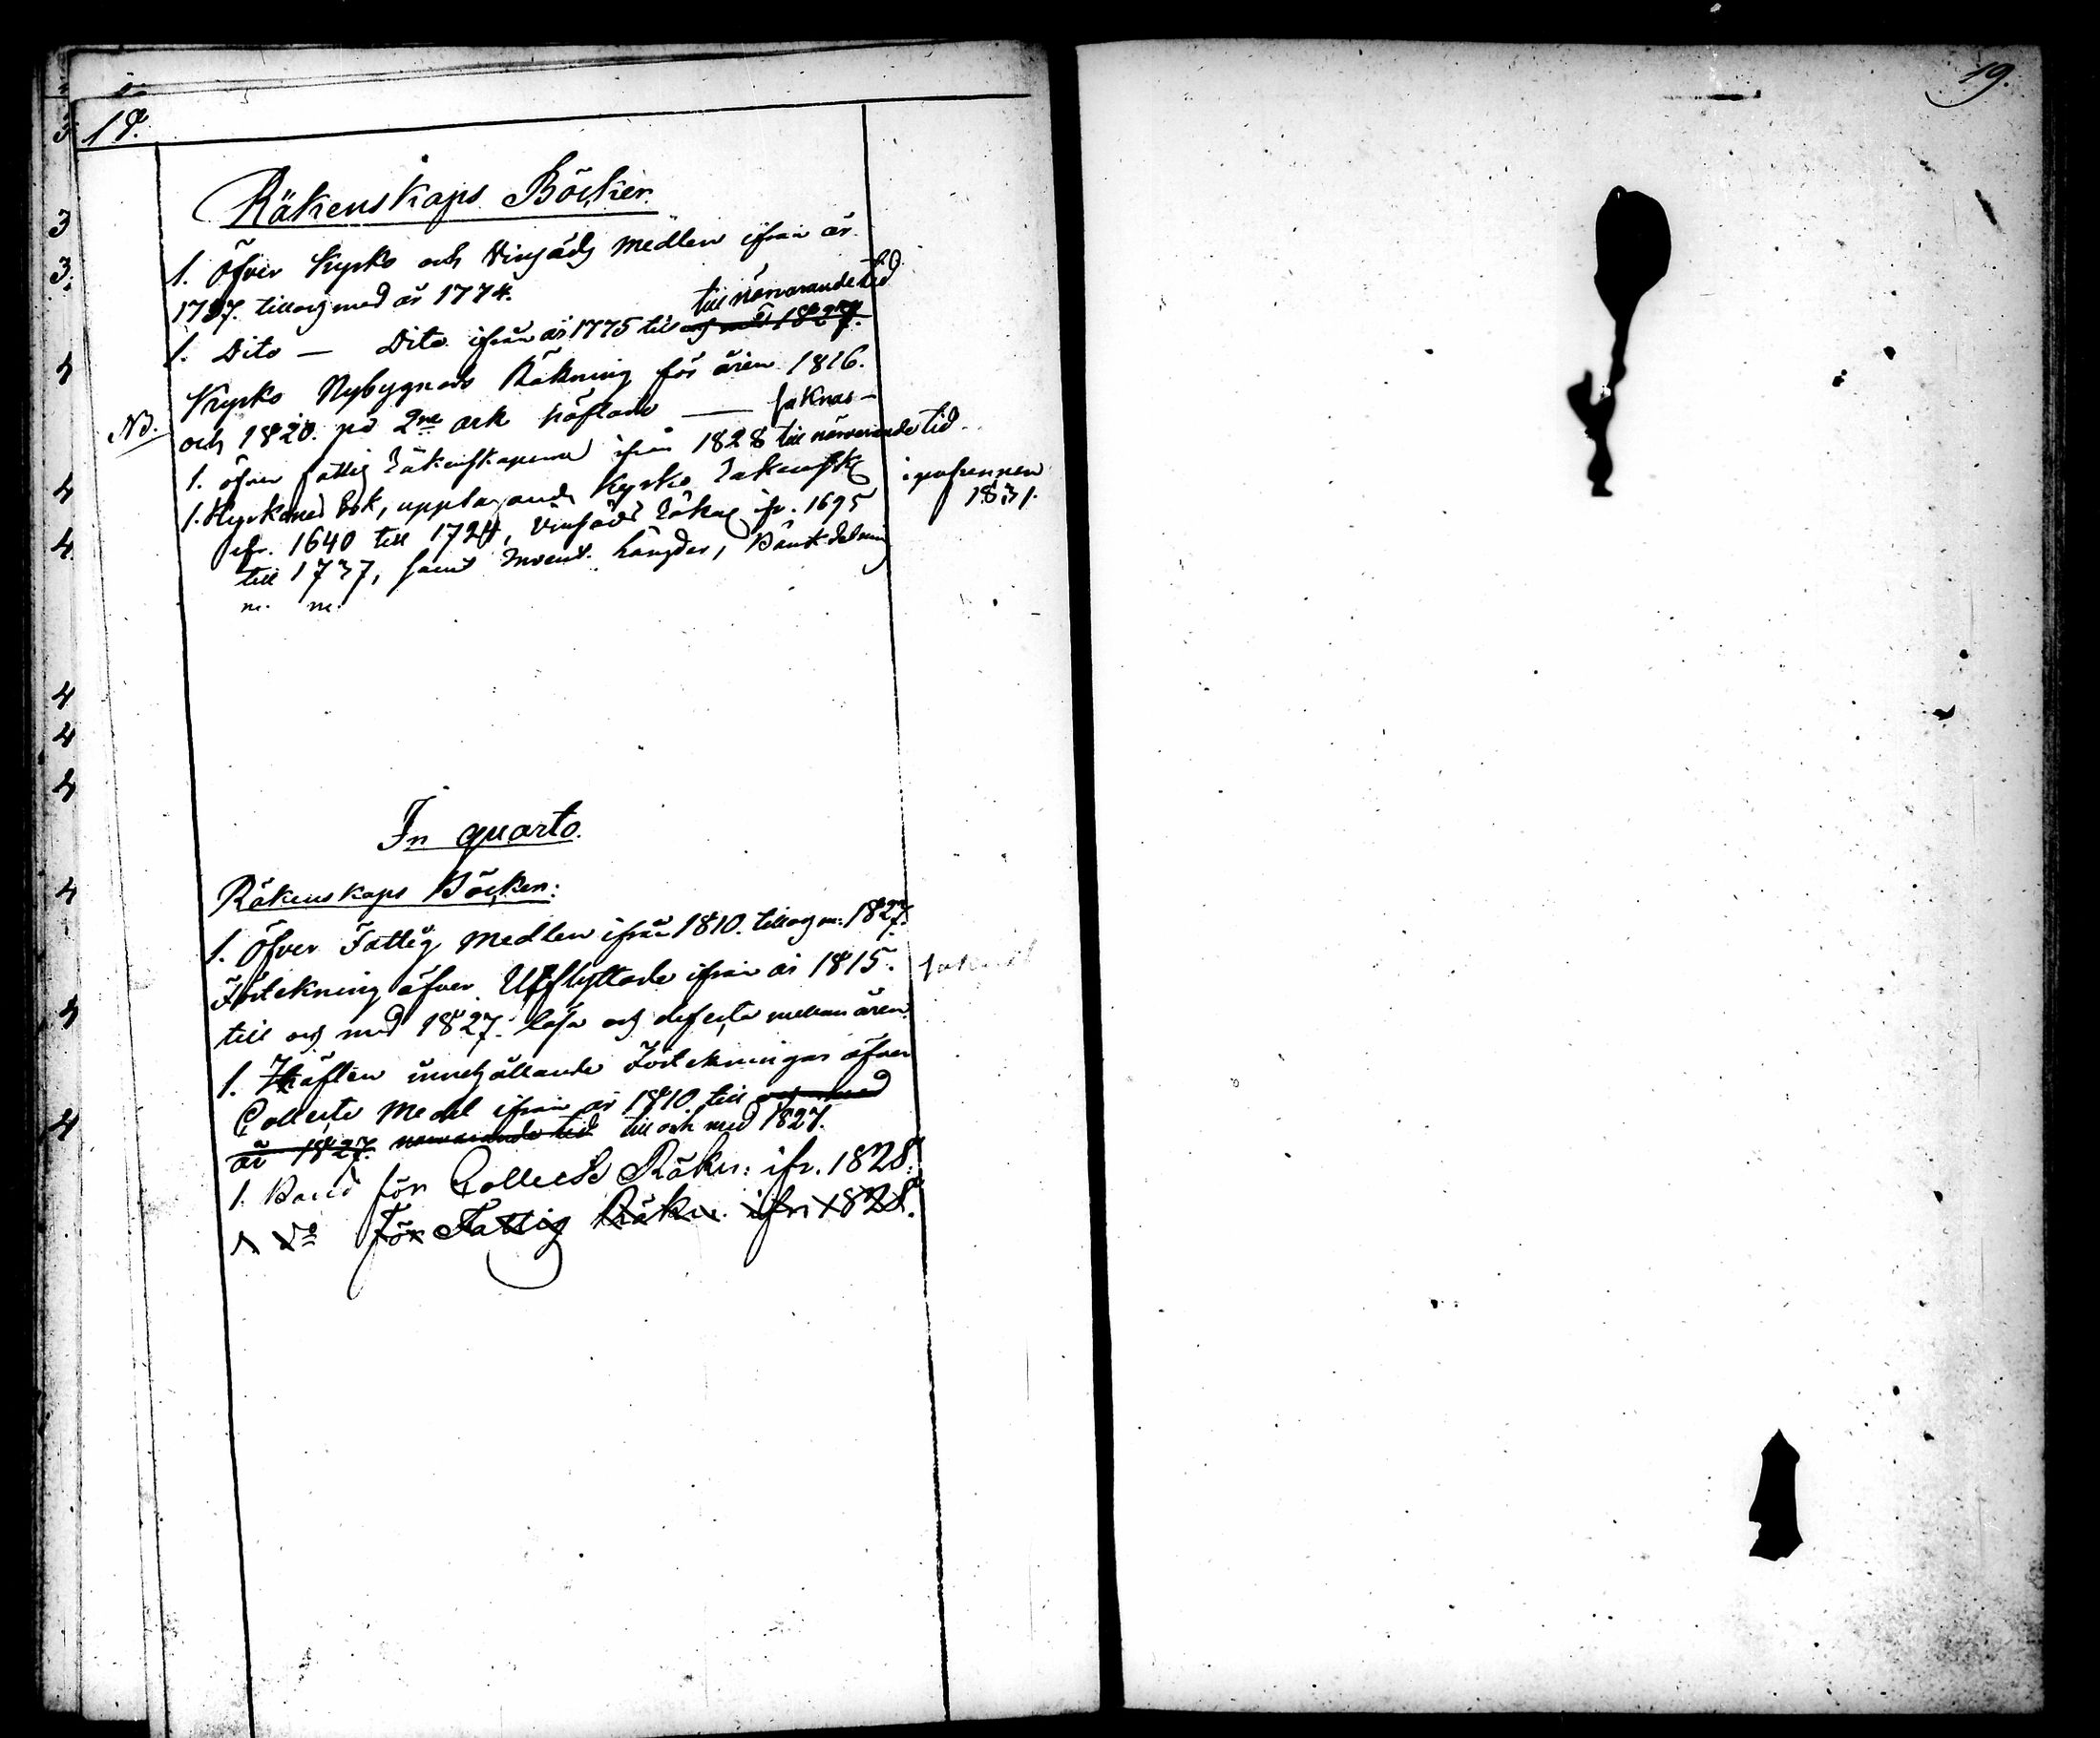 18.
Räkenskaps Böcker.
1. Öfver Kyrko och Vinsäds Medlen ifrån år
1737. till och med år 1774.
1. Dito — Dito ifrån år 1775 till och med 1827. till närvarande tid
Kyrko Nybygnads Räkning för åren 1816.
NB. och 1820. på 2ne ark häftade — saknas —
1. öfver fattig Räkenskaperna ifrån 1828 till närvarande tid.
1. Kyrkones bok, upptagande Kyrko Räkensk
ifr. 1640 till 1724, Vinsäds Räkng ifr. 1695
till 1737, samt Invent. längder, Bänkdelning
m. m.
1831.
In quarto.
Räkenskaps Böcker:
1. Öfver Fattig Medlen ifrån 1810. till och m: 1827.
Förtekning öfver Utflyttade ifrån år 1815. saknas
till och med 1827. lösa och defecta mellan åren.
1. Häften innehållande Förtekningar öfver
Collecte Medel ifrån år 1810 till och med
år 1827. närvarande tid till och med 1827.
1. Band för Collect Räkn: ifr. 1828.
1 Do för Fattig Räkn. ifrn 1828.
19.
3
3.
4
4
4
4
4
4
4
4
4